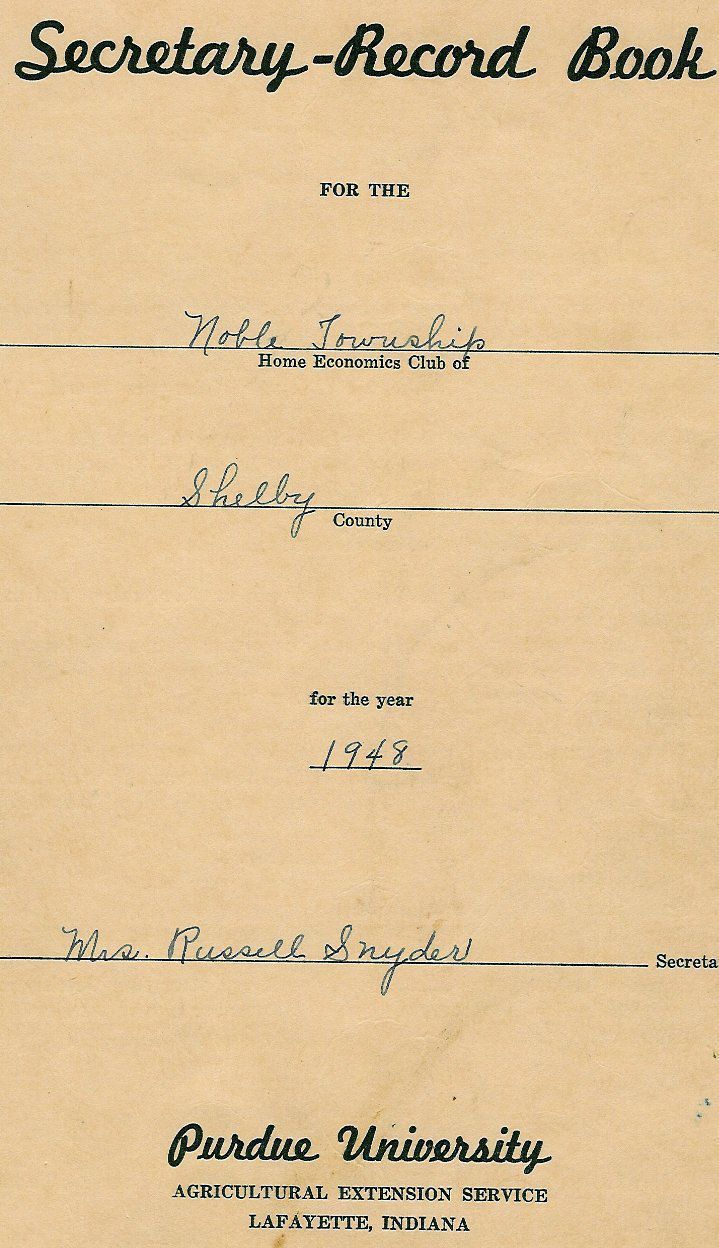 Secretary-Record Book
FOR THE
Noble Township
Home Economics Club of
Shelby
County
for the year
1948
Mrs. Russell Snyder Secreta
Purdue University
AGRICULTURAL EXTENSION SERVICE
LAFAYETTE, INDIANA